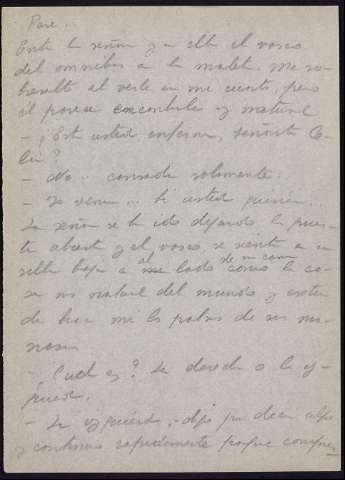 Pase...
Entra la señora y en ella el vasco
del omnibus a la maleta. Me so-
bresalto al verle en mi cuarto, pero
él parece encontrarlo muy natural
- ¿Está usted enferma, señorita Ce-
lia?
- No.. cansada solamente.
- Yo venía... Si usted quiere...
La señora se ha ido dejando la puer-
ta abierta y el vasco, se sienta a en
silla baja a al lado de mi cama como la co-
sa mas natural del mundo y extien-
de hacia mi las palmas de sus ma-
nos.
- ¿Cual es? La derecha o la iz-
quierda.
- La izquierda, - dijo por decir algo
y continua rapidamente porque compren